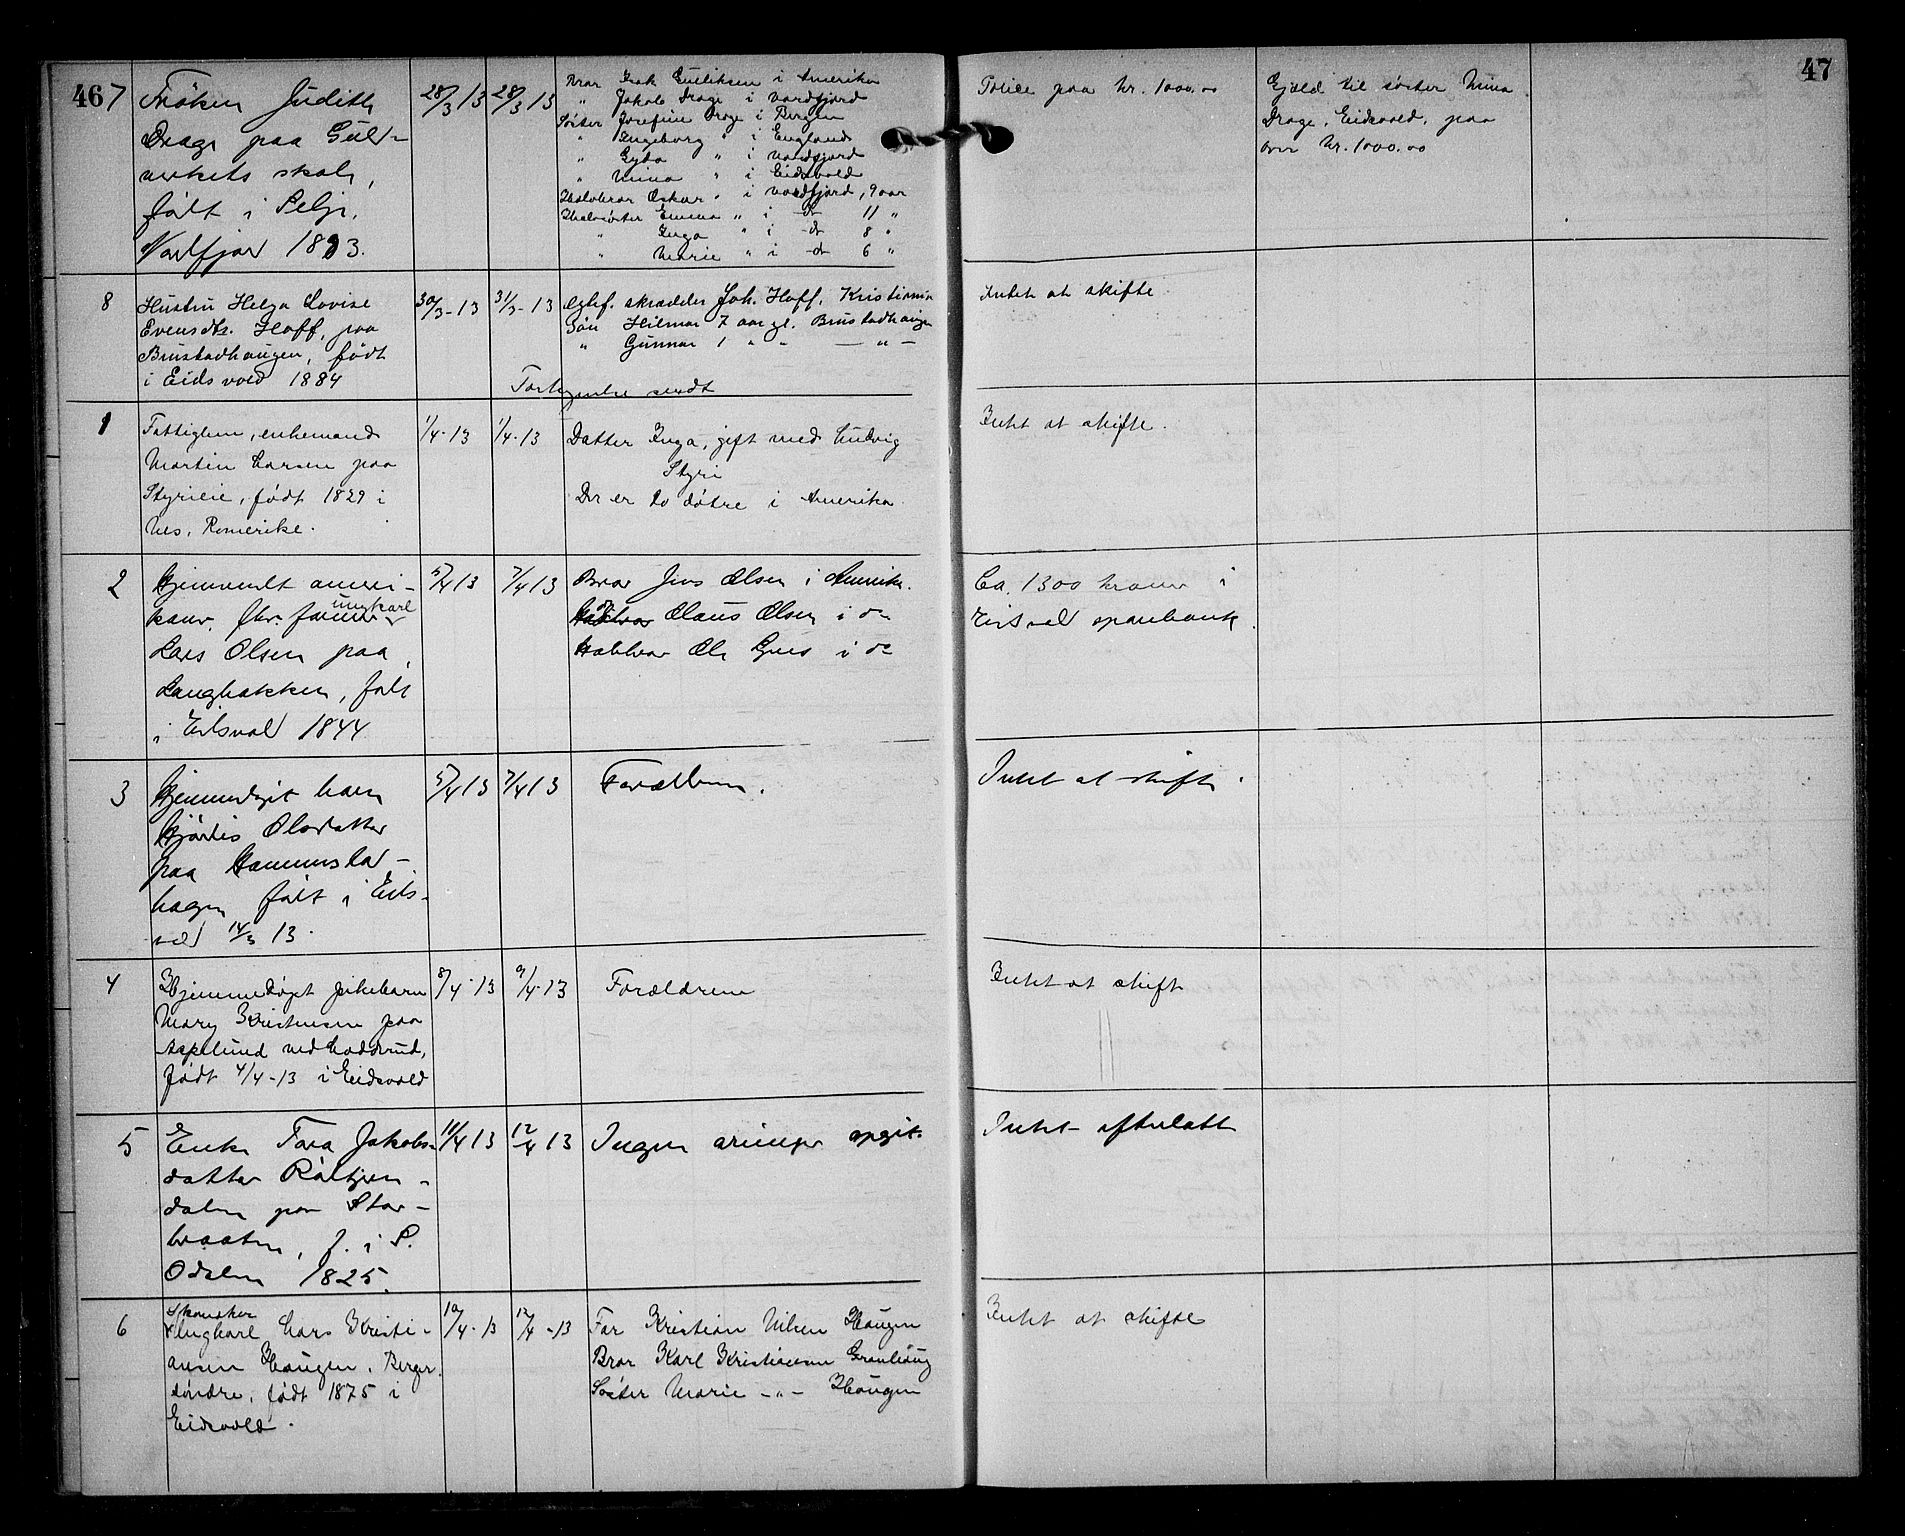 46
7
Frøken Judith
Drage paa Gul-
verkets skole,
født i Selje,
Nordfjor 1893.
28/3 13
28/3 13
Bror Isak Gulliksen i Amerika
" Jakob Drage i Nordfjord
Søster Josefine Drage i Bergen
" Ingeborg " i England
" Gyda " i Nordfjord
" Mina " i Eidsvold
Halvbror Oskar " i Nordfjord, 9 aar
Halvsøster Emma " i do 11 "
" Inga " i do 8 "
" Marie " i do 6 "
8
Hustru Helga Lovise
Evensdtr. Hoff, paa
Brustadhaugen, født
i Eidsvold 1884
30/3-13
31/3-13
Egtef. skrædder Joh. Hoff, Kristiania
Søn Hilmar 7 aar gl. Brustadhaugen
" Gunnar 1 " " — " —
sendt
1
Fattiglem, enkemand
Martin Larsen paa
Styrieie, født 1829 i
Nes, Romerike.
1/4-13
1/4-13
Datter Inga, gift med Ludvig
Styri
Der er to døtre i Amerika.
2
Hjemvendt ameri-
kaner, fhv.
ungkarl
Lars Olsen paa
Langbakken, født
i Eidsvold 1844
5/4 13
7/4 13
Bror Jens Olsen i Amerika.
Claus Olsen i do
Halvbror i do
3
Hjemmedøpt barn
Hjørdis Olsdatter
paa Hammerstad-
hagen født i Eids-
vold 14/3 13.
5/4 13
7/4 13
Forældrene.
4
Hjemmedøpt pikebarn
Mary Kristensen paa
Aspelund ved
født 4/4-13 i Eidsvold
8/4-13
9/4-13
Forældrene
5
Enke Tora Jakobs-
datter
dalen paa Stor-
braaten, f. i S.
Odalen 1825.
11/4 13
12/4 13
Ingen arvinger opgit.
6
Skomaker
Ungkarl Lars Kristi-
ansen Haugen, Berger
søndre, født 1875 i
Eidsvold.
10/4-13
12/4-13
Far Kristian Nilsen Haugen
Bror Karl Kristiansen Granhaug
Søster Marie — " — Haugen
47
Police paa kr. 1000.00
Gjæld til søster Mina
Drage, Eidsvold, paa
over kr. 1000.00
Intet at skifte
Intet at skifte.
Ca. 1300 kroner i
Eidsvold sparebank.
Intet at skifte.
Intet at skifte
Intet efterlatt
Intet at skifte